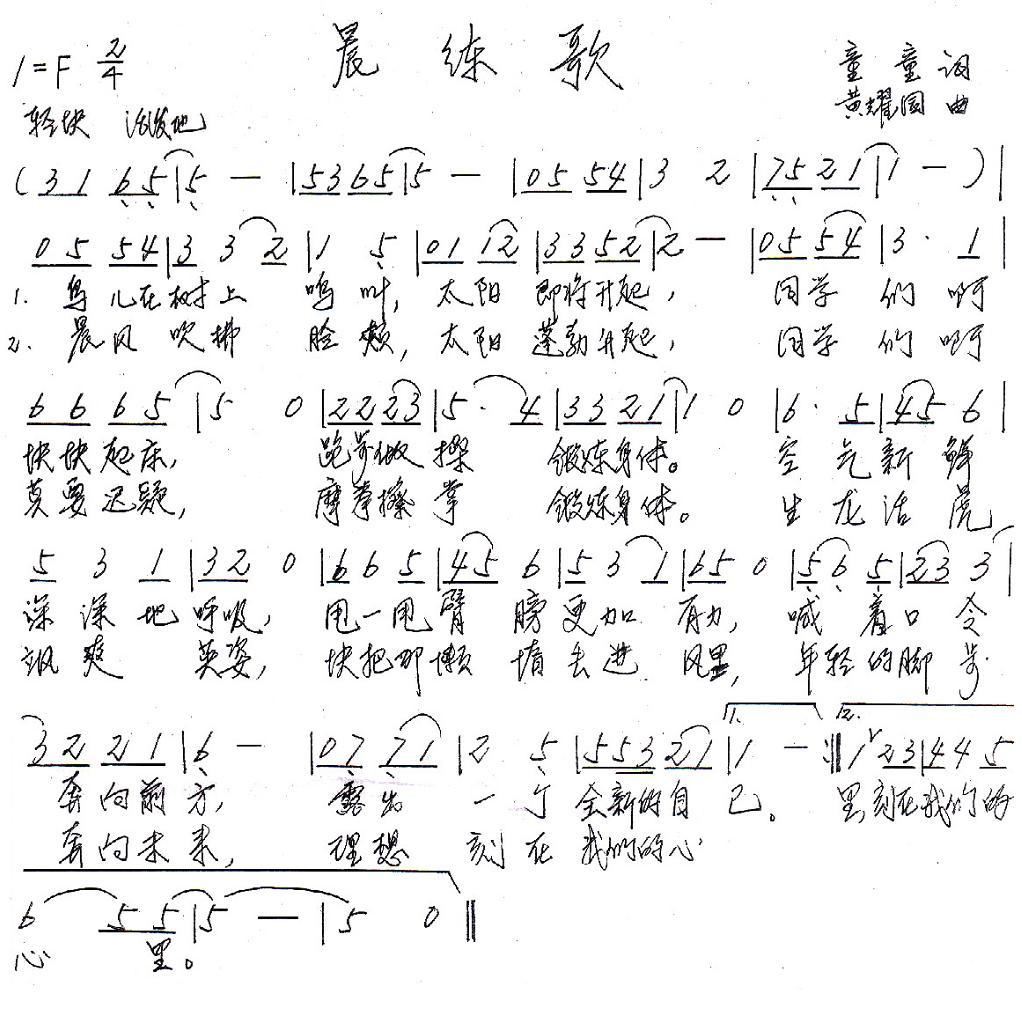 晨练歌
1=F 2/4
童童词
黄耀国曲
轻快 活泼地
(3 1 6 5|5 — |5 3 6 5|5 — |0 5 5 4|3 2|7 5 2 1|1 — )|
0 5 5 4|3 3 2|1 5|0 1 1 2|3 3 5 2|2 — |0 5 5 4|3· 1|
1. 鸟儿在树上 鸣叫, 太阳 即将升起, 同学 们 啊
2. 晨风吹拂 脸颊, 太阳 蓬勃升起, 同学 们 啊
6 6 6 5|5 0|2 2 2 3|5· 4|3 3 2 1|1 0|6· 5|4 5 6|
快快起床, 跑步做操 锻炼身体。 空气新鲜
莫要迟疑, 摩拳擦掌 锻炼身体。 生龙活虎
5 3 1|3 2 0|6 6 5|4 5 6|5 3 1|6 5 0|5 6 5|2 3 3|
深深地呼吸, 甩一甩臂膀更加有力, 喊着口令
飒爽 英姿, 快把那懒惰丢进风里, 年轻的脚步
3 2 2 1|6 — |0 7 7 1|2 5|5 5 3 2 1|1 — :‖1 2 3|4 4 5
1. 2.
奔向前方, 露出 一个全新的自己。 里刻在我们的
奔向未来, 理想 刻在我们的心
6 5 5|5 — |5 0‖
心 里。